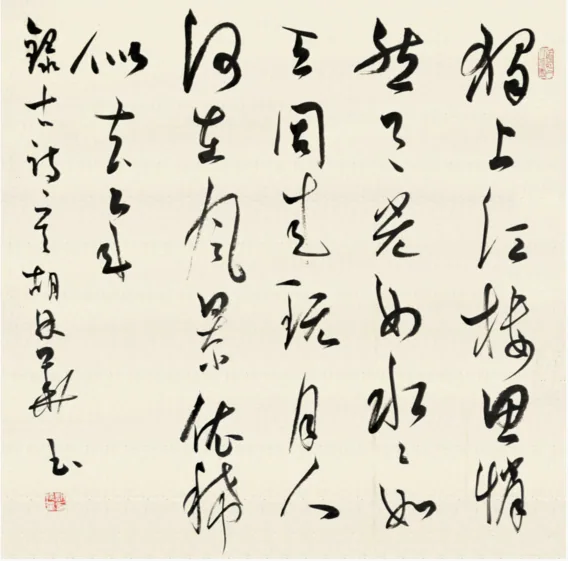 獨上江楼思悄
然月光如水々如
天同来玩月人
何在风景依稀
似去年
録古诗一首胡书